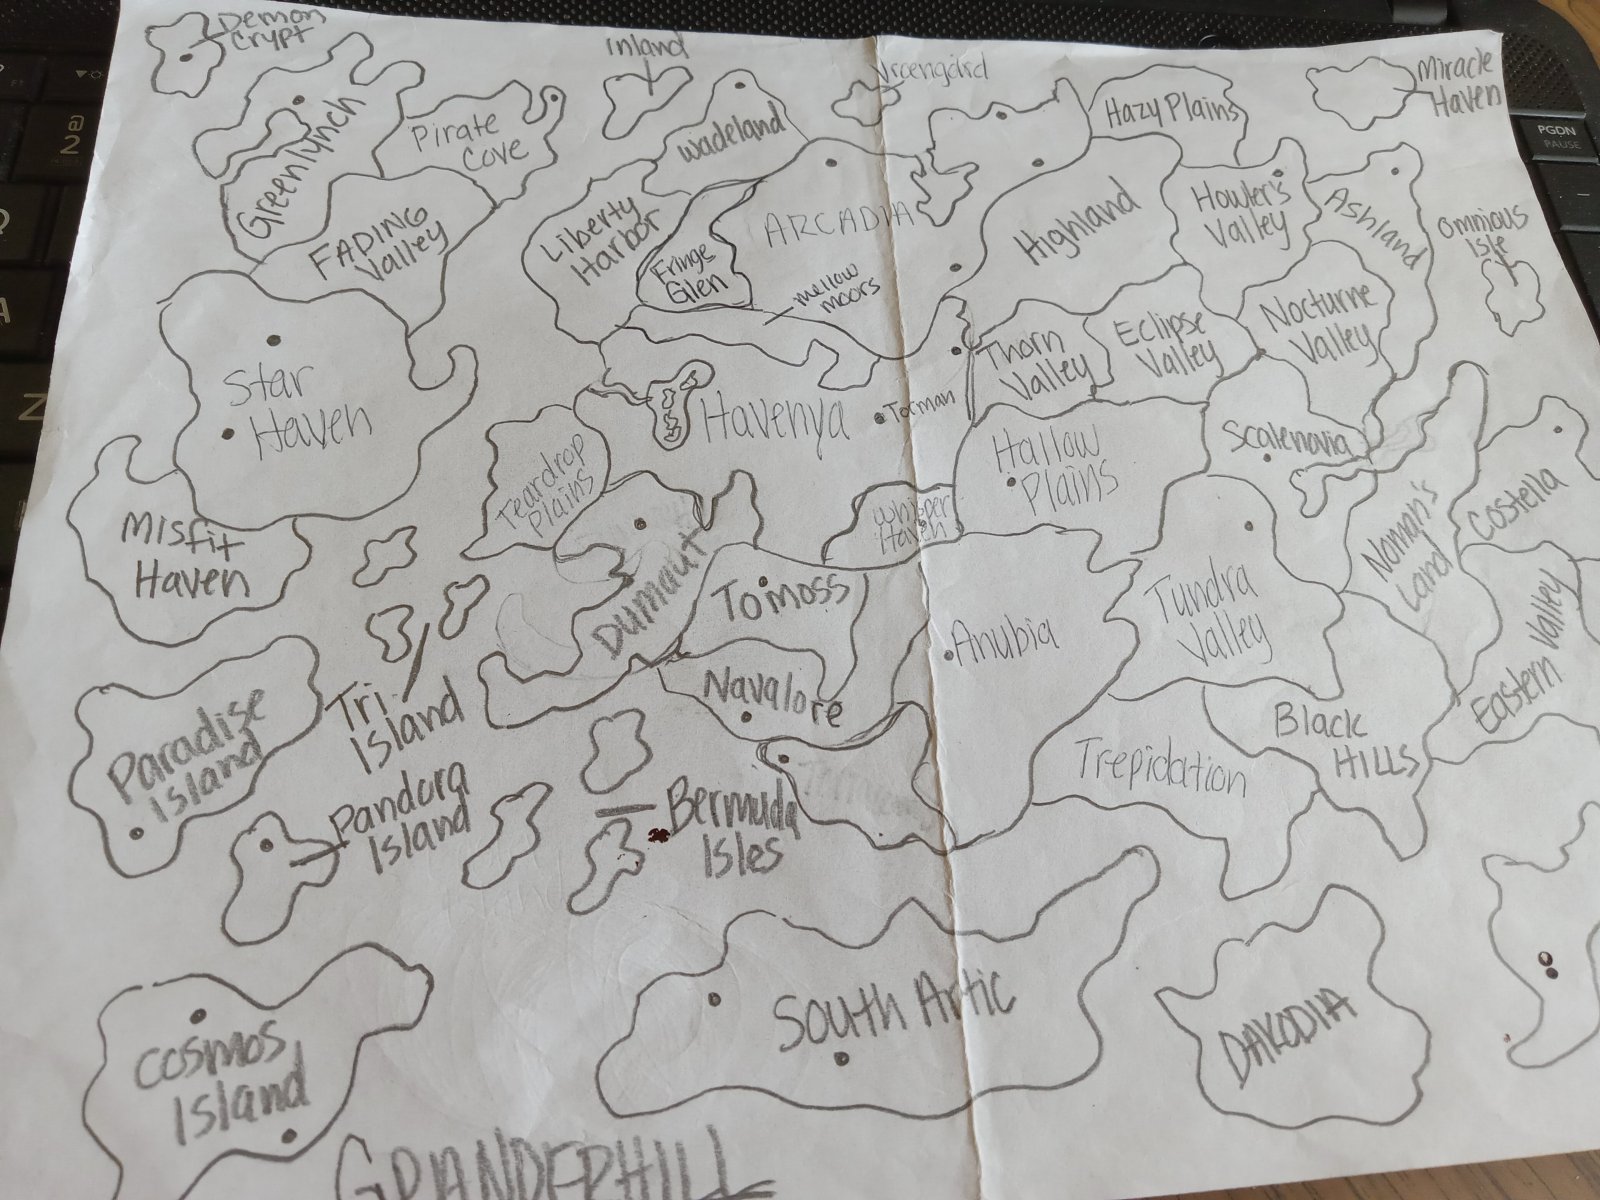 Demon
Crypt
Inland
Vroengard
Miracle
Haven
Hazy Plains
Pirate
Cove
Wadeland
Greenlynch
FADING
Valley
Liberty
Harbor
ARCADIA
Fringe
Glen
Mellow
Moors
Highland
Howler's
Valley
Ashland
Omnious
Isle
Thorn
Valley
Eclipse
Valley
Nocturne
Valley
Star
Haven
Havenya
Torman
Hallow
Plains
Scalenovia
Teardrop
Plains
Whisper
Haven
Misfit
Haven
Dumaut
Tomoss
Anubia
Tundra
Valley
Noman's
Land
Costella
Eastern Valley
Navalore
Tri
Island
Paradise
Island
Pandora
Island
Bermuda
Isles
Trepidation
Black
HILLS
South Artic
DAKODIA
Cosmos
Island
GRANDERHILL
@
2
A
Z
PGDN
PAUSE